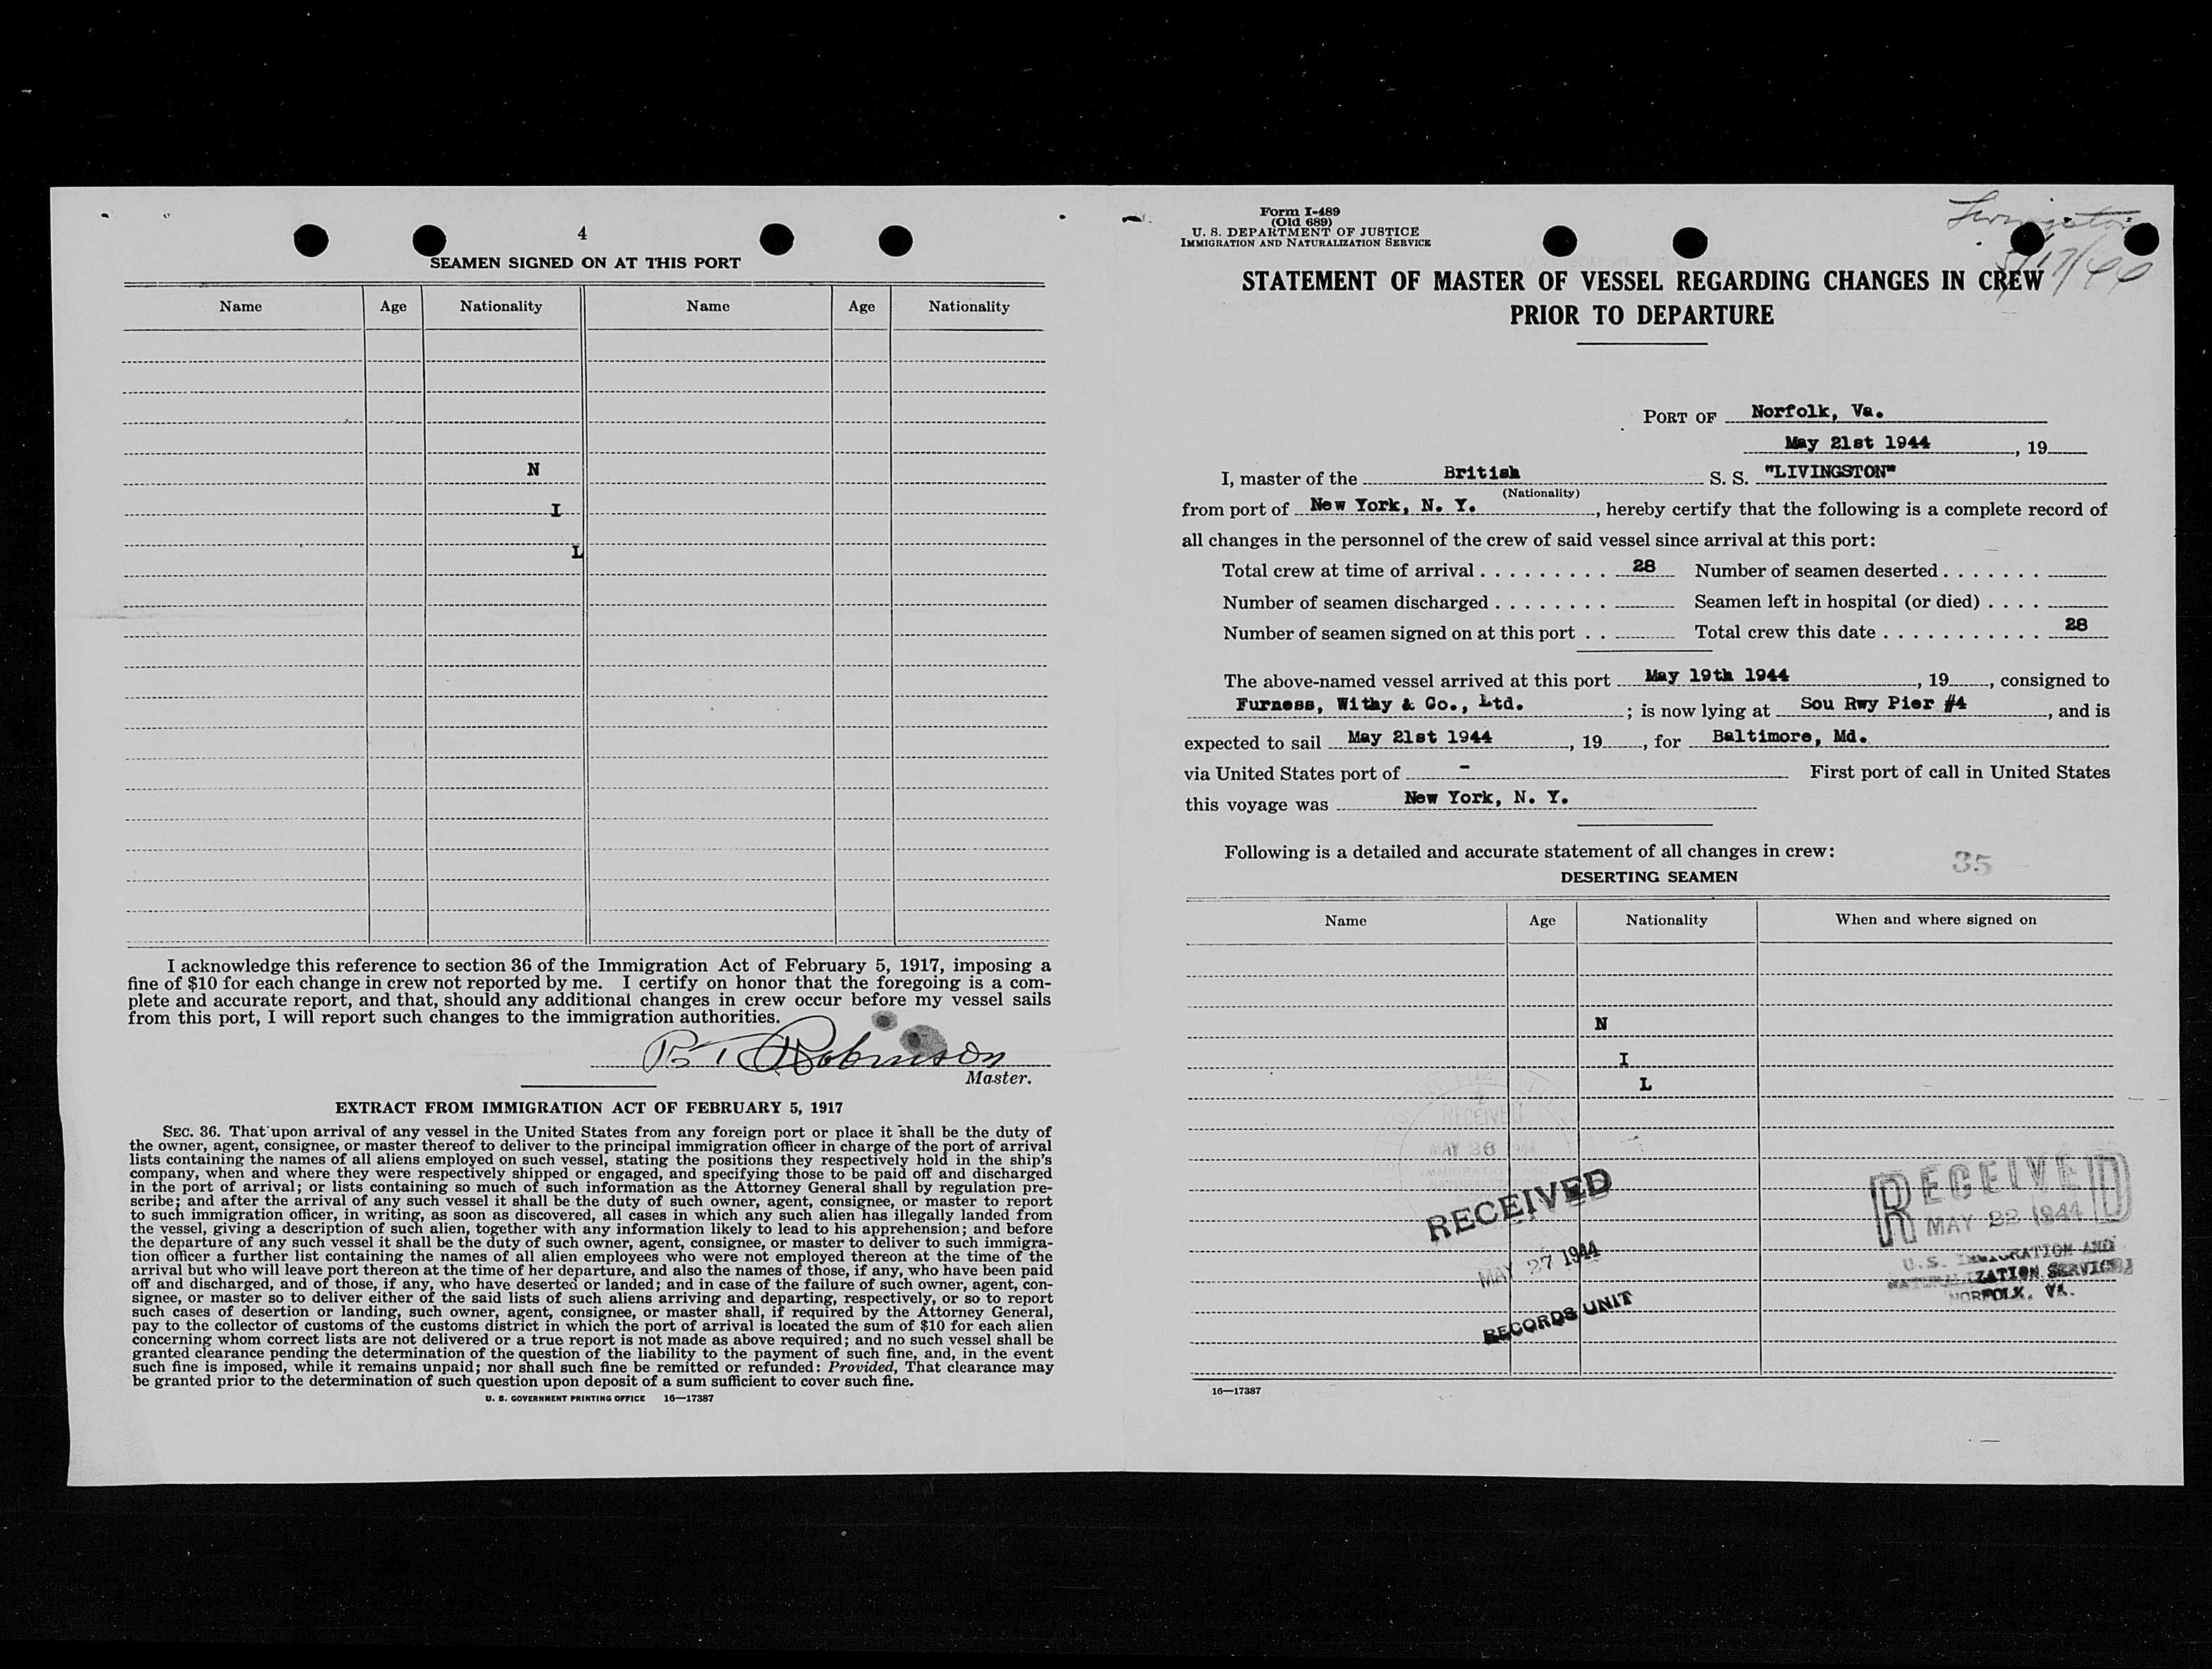 4
SEAMEN SIGNED ON AT THIS PORT
Name Age Nationality Name Age Nationality
N
I
L
I acknowledge this reference to section 36 of the Immigration Act of February 5, 1917, imposing a
fine of $10 for each change in crew not reported by me. I certify on honor that the foregoing is a com-
plete and accurate report, and that, should any additional changes in crew occur before my vessel sails
from this port, I will report such changes to the immigration authorities.
Robinson
Master.
EXTRACT FROM IMMIGRATION ACT OF FEBRUARY 5, 1917
SEC. 36. That upon arrival of any vessel in the United States from any foreign port or place it shall be the duty of
the owner, agent, consignee, or master thereof to deliver to the principal immigration officer in charge of the port of arrival
lists containing the names of all aliens employed on such vessel, stating the positions they respectively hold in the ship's
company, when and where they were respectively shipped or engaged, and specifying those to be paid off and discharged
in the port of arrival; or lists containing so much of such information as the Attorney General shall by regulation pre-
scribe; and after the arrival of any such vessel it shall be the duty of such owner, agent, consignee, or master to report
to such immigration officer, in writing, as soon as discovered, all cases in which any such alien has illegally landed from
the vessel, giving a description of such alien, together with any information likely to lead to his apprehension; and before
the departure of any such vessel it shall be the duty of such owner, agent, consignee, or master to deliver to such immigra-
tion officer a further list containing the names of all alien employees who were not employed thereon at the time of the
arrival but who will leave port thereon at the time of her departure, and also the names of those, if any, who have been paid
off and discharged, and of those, if any, who have deserted or landed; and in case of the failure of such owner, agent, con-
signee, or master so to deliver either of the said lists of such aliens arriving and departing, respectively, or so to report
such cases of desertion or landing, such owner, agent, consignee, or master shall, if required by the Attorney General,
pay to the collector of customs of the customs district in which the port of arrival is located the sum of $10 for each alien
concerning whom correct lists are not delivered or a true report is not made as above required; and no such vessel shall be
granted clearance pending the determination of the question of the liability to the payment of such fine, and, in the event
such fine is imposed, while it remains unpaid; nor shall such fine be remitted or refunded: Provided, That clearance may
be granted prior to the determination of such question upon deposit of a sum sufficient to cover such fine.
U. S. GOVERNMENT PRINTING OFFICE 16—17387
Form I-489
(Old 689)
U. S. DEPARTMENT OF JUSTICE
IMMIGRATION AND NATURALIZATION SERVICE
Livingston
5/17/44
STATEMENT OF MASTER OF VESSEL REGARDING CHANGES IN CREW
PRIOR TO DEPARTURE
PORT OF Norfolk, Va.
May 21st 1944, 19
I, master of the British S. S. "LIVINGSTON"
(Nationality)
from port of New York, N. Y., hereby certify that the following is a complete record of
all changes in the personnel of the crew of said vessel since arrival at this port:
Total crew at time of arrival 28 Number of seamen deserted
Number of seamen discharged Seamen left in hospital (or died)
Number of seamen signed on at this port Total crew this date 28
The above-named vessel arrived at this port May 19th 1944, 19, consigned to
Furness, Withy & Co., Ltd.; is now lying at Sou Rwy Pier #4, and is
expected to sail May 21st 1944, 19, for Baltimore, Md.
via United States port of - First port of call in United States
this voyage was New York, N. Y.
Following is a detailed and accurate statement of all changes in crew:
35
DESERTING SEAMEN
Name Age Nationality When and where signed on
N
I
L
RECEIVED
RECEIVED
MAY 27 1944
RECORDS UNIT
RECEIVED
MAY 22 1944
U.S. IMMIGRATION AND
NATURALIZATION SERVICE
NORFOLK, VA.
16—17387